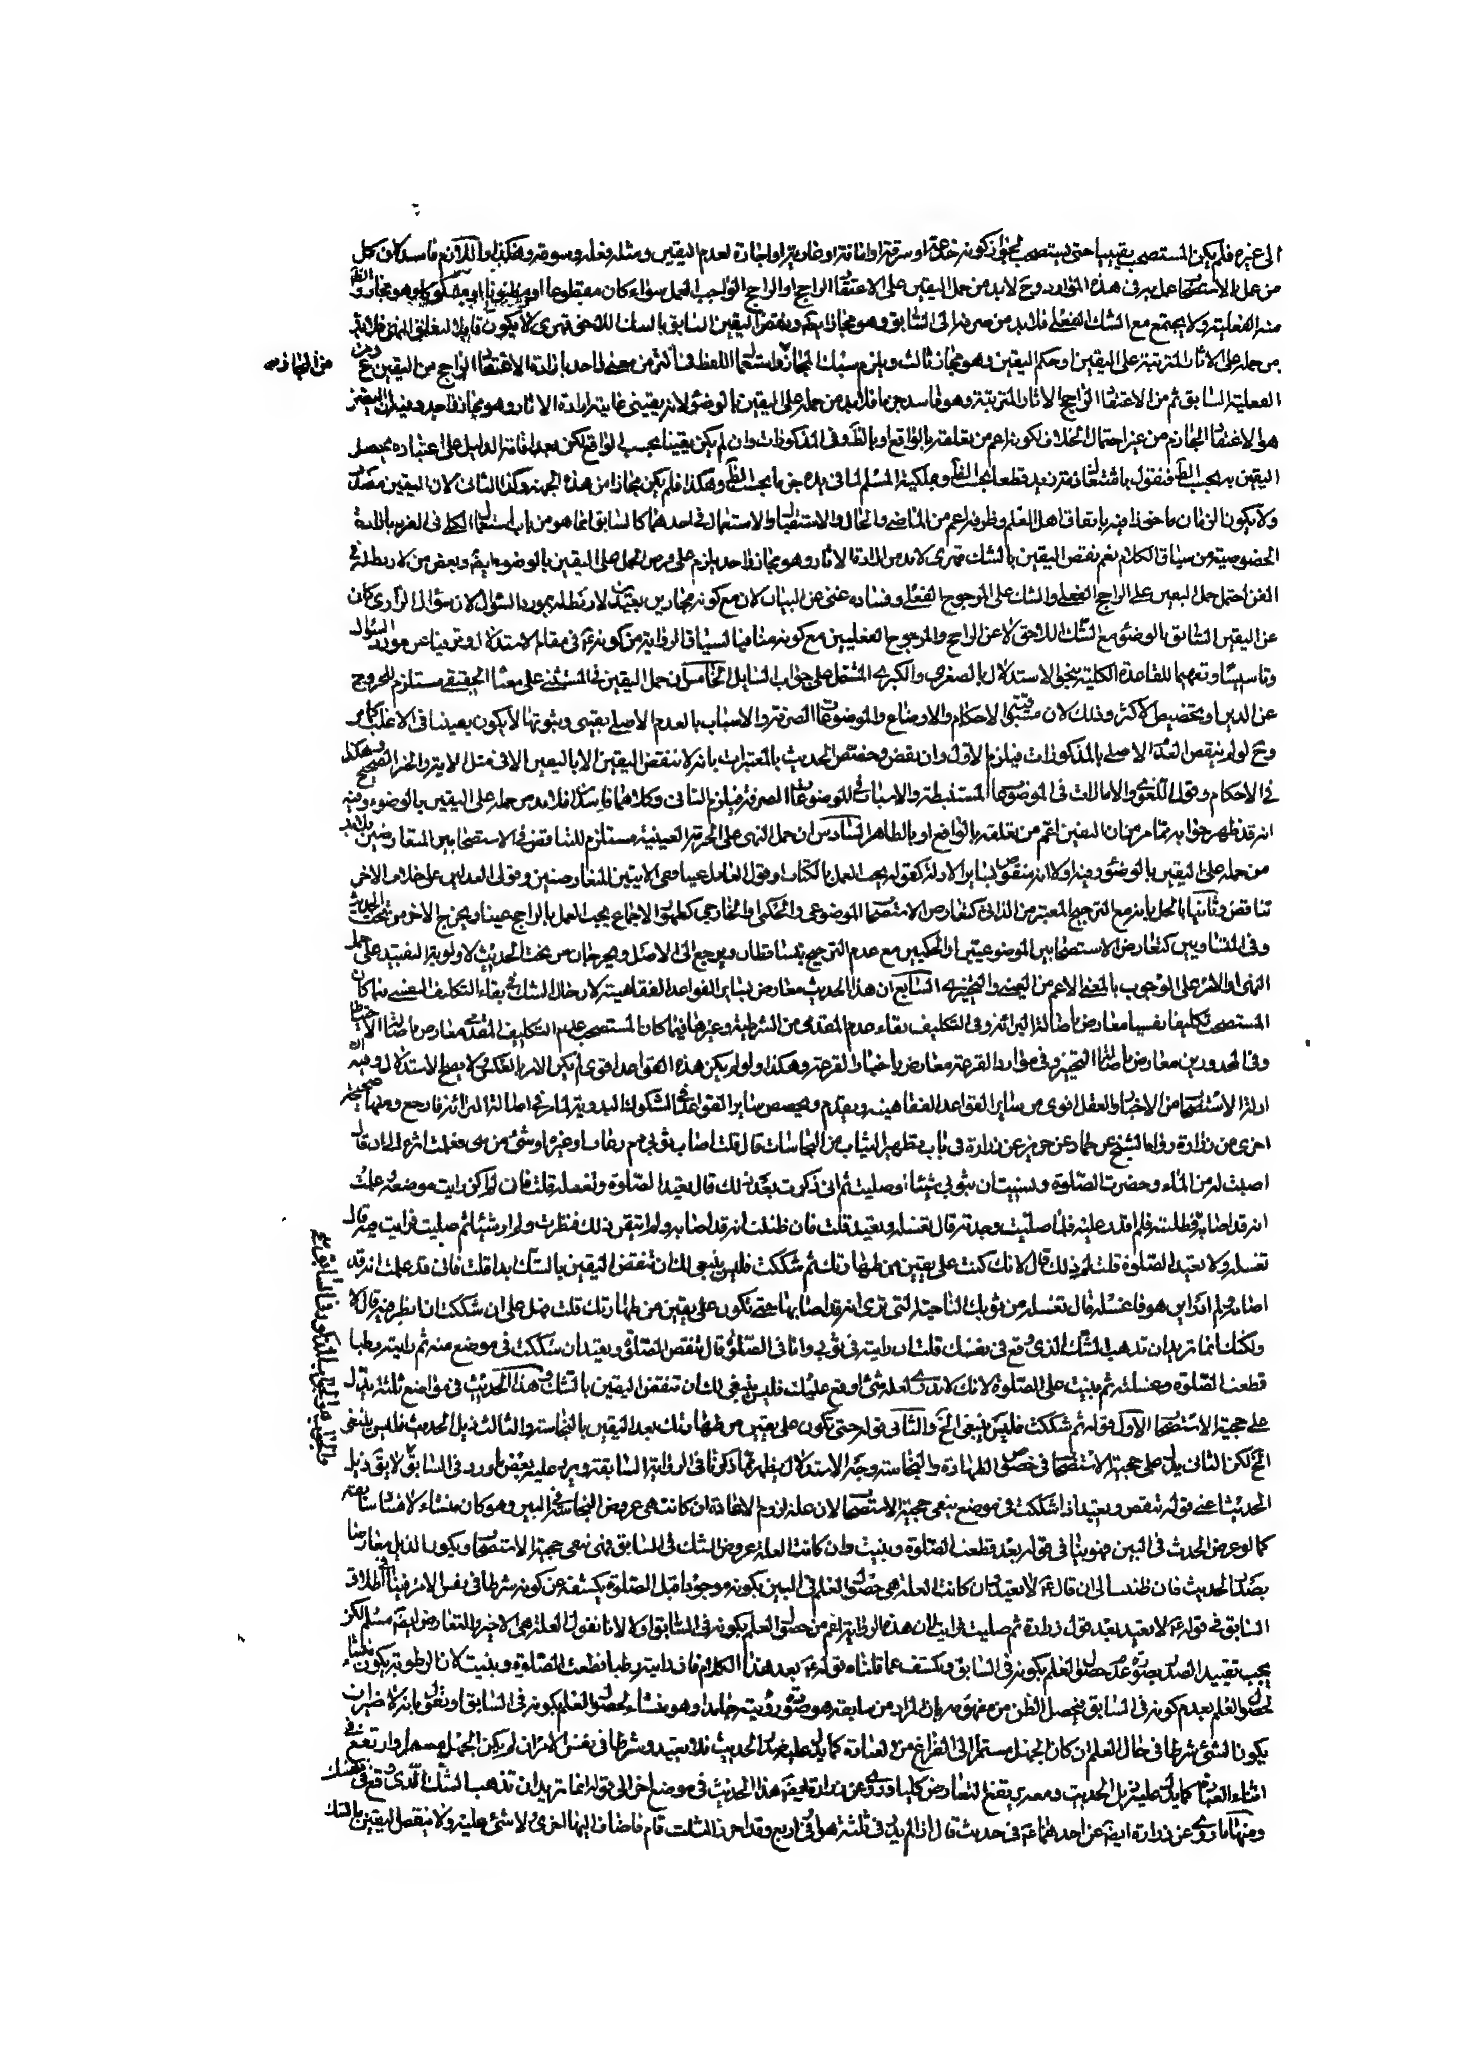 الى غيره فلم يكن المستصحب يقينيا حتى يستصحب لجواز كونه خدعة او سرقة او امانة او عارية او اجارة لعدم اليقين ومثله فعله وسوقه وهكذا واللازم فاسد لان كل
من عمل بالاستصحاب عمل به في هذه الموارد وح لابد من حمل اليقين على الاعتقاد الراجح او الراجح الواجب العمل سواء كان مقطوعا او مظنونا او مشكوكا وهو مجاز
منه الفعلية ولا يجتمع مع الشك الفعلي فلابد من صرفه الى السابق وهو مجاز ايضا ونقض اليقين السابق بالشك اللاحق قهرى لا يكون قابلا لتعلق النهي فلابد
من حمله على الاثار المترتبة على اليقين او حكم اليقين وهو مجاز ثالث ويلزم سبك المجاز واستعمال اللفظ في اكثر من معنى واحد بارادة الاعتقاد الراجح من اليقين
الفعلية السابق ثم من الاعتقاد الراجح الاثار المترتبة وهو فاسد جزما فلابد من حمله على اليقين بالوضوء لانه يقيني غايته ارادة الاثار وهو مجاز واحد
هو الاعتقاد الجازم من غير احتمال الخلاف لكونه اعم من تعلقه بالواقع او بالظ وفي المذكورات وان لم يكن يقينا بحسب الواقع لكن بعد اقامة الدليل على اعتباره يحصل
اليقين به بحسب الظ فنقول باشتغال ذمة زيد قطعا بحسب الظ وملكية المسلم لما في يده جزما بحسب الظ وهكذا فلم يكن مجازا من هذه الجهة وكذا الثاني لان اليقين مصدر
ولا يكون الزمان ماخوذا فيه باتفاق اهل العلم وظرفه اعم من الماضي والحال والاستقبال والاستعمال في احدهما كالسابق انما هو من باب استعمال الكلي في الفرد بارادة
الخصوصية من سياق الكلام نعم نقض اليقين بالشك قهرى لابد من ارادة الاثار وهو مجاز واحد يلزم على فرض الحمل على اليقين بالوضوء ايضا وبعض من لا ربط له في
الفن احتمل حمل اليقين على الراجح الفعلي والشك على المرجوح الفعلي وفساده غني عن البيان لان مع كونه مجازين بعيدين لا ربط له بمورد السؤال لان سؤال الراوى كان
عن اليقين السابق بالوضوء مع الشك اللاحق لا عن الراجح والمرجوح الفعليين مع كونه منافيا لسياق الرواية من كونه في مقام الاستدلال وترخيا عن مورد السؤال
وتاسيسا وتعميما للقاعدة الكلية بنحو الاستدلال بالصغرى والكبرى المشتمل على جواب السايل الخامس ان حمل اليقين في المستثنى على معناه الحقيقي مستلزم للخروج
عن الدين او تخصيص الاكثر وذلك لان مثبتية الاحكام والاوضاع والموضوعات الصرفة والاسباب بالعدم الاصلي يقيني وثبوتها لا يكون يقينيا في الاغلب
وح لو لم ينقض العدم الاصلي بالمذكورات فيلزم الاول وان نقض وخصص الحديث بالمعتبرات بانه لا تنقض اليقين الا باليقين الا في مثل الاية والخبر الصحيح
في الاحكام وقول اللغوي والامارات في الموضوعات المستنبطة والاسباب للموضوعات الصرفة فيلزم الثاني وكلاهما فاسدان فلابد من حمله على اليقين بالوضوء وفيه
انه قد ظهر جوابه مما مر من ان اليقين اعم من تعلقه بالواقع او بالظاهر السادس ان حمل النهي على الحرمة العينية مستلزم للتناقض في الاستصحابين المتعارضين فلابد
من حمله على اليقين بالوضوء وفيه اولا انه منقوض بساير الادلة كقوله يجب العمل بالكتاب او قول العادل عينا وفي الايتين المتعارضتين وقولي العدلين على خلاف الاخر
تناقض وثانيا بالحل بانه مع الترجيح المعتبر من الذاتي كتعارض الاستصحاب الموضوعي والحكمي والخارجي كظهور الاجماع يجب العمل بالراجح عينا ويخرج الاخر من تحت الحديث
وفي المتساويين كتعارض الاستصحابين الموضوعيين او الحكميين مع عدم الترجيح يتساقطان ويرجع الى الاصل ويخرجان من تحت الحديث لاولوية التقييد على حمل
النهي او الامر على الوجوب بالمعنى الاعم من العيني والتخييري السابع ان هذا الحديث معارض بساير القواعد الفقاهية لان حال الشك في بقاء التكليف النفسي بما كان
المستصحب تكليفا نفسيا معارض باصالة البرائة وفي التكليف بقاء عدم المقدمي من الشرطية وغيرها فيما كان المستصحب عدم التكليف المقدمي معارض باصالة الاحتياط
وفي المحذورين معارض باصالة التخيير وفي موارد القرعة معارض باخبار القرعة وهكذا ولو لم يكن هذه القواعد اقوى لم يكن الامر بالعكس فلا يصح الاستدلال وفيه
ادلة الاستصحاب من الاخبار والعقل اقوى من ساير القواعد الفقاهية ويقدم ويخصص ساير القواعد في الشكوك البدوية لما مر في اصالة البرائة فراجع ومنها صحيحة
اخرى عن زرارة رواها الشيخ عن حماد عن حريز عن زرارة في باب تطهير الثياب من النجاسات قال قلت اصاب ثوبي دم رعاف او غيره او شئ من مني فعلمت اثره الى ان
اصبت له من الماء وحضرت الصلوة ونسيت ان بثوبي شيئا وصليت ثم اني ذكرت بعد ذلك قال تعيد الصلوة وتغسله قلت فان لم اكن رايت موضعه وعلمت
انه قد اصابه فطلبته فلم اقدر عليه فلما صليت وجدته قال تغسله وتعيد قلت فان ظننت انه قد اصابه ولم اتيقن ذلك فنظرت ولم ار شيئا ثم صليت فرايت فيه قال
تغسله ولا تعيد الصلوة قلت لم ذلك قال لانك كنت على يقين من طهارتك ثم شككت فليس ينبغي لك ان تنقض اليقين بالشك ابدا قلت فاني قد علمت انه قد
اصابه ولم ادر اين هو فاغسله قال تغسله من ثوبك الناحية التي ترى انه قد اصابها حتى تكون على يقين من طهارتك قلت فهل على ان شككت ان انظر فيه قال لا
ولكنك انما تريد ان تذهب الشك الذي وقع في نفسك قلت ان رايته في ثوبي وانا في الصلوة قال تنقض الصلوة وتعيد ان شككت في موضع منه ثم رايته رطبا
قطعت الصلوة وغسلته ثم بنيت على الصلوة لانك لا تدري لعله شئ اوقع عليك فليس ينبغي لك ان تنقض اليقين بالشك وهذا الحديث في مواضع ثلثة يدل
على حجية الاستصحاب الاول قوله ثم شككت فليس ينبغي الخ والثاني قوله حتى تكون على يقين من طهارتك بعد اليقين بالنجاسة والثالث ذيل الحديث فليس ينبغي
الخ لكن الثاني يدل على حجية الاستصحاب في خصوص الطهارة والنجاسة وجه الاستدلال يظهر مما ذكرنا في الرواية السابقة ويرد عليه بعض ما ورد في السابق لا يق ذيل
الحديث اعني قوله تنقض وتعيد اذا شككت في موضع ينفي حجية الاستصحاب لان علة لزوم الاعادة ان كانت هي عروض النجاسة في البين وهو كان منشاء لافساد سابقته
كما لو عرض الحدث في البين فهو ينافي قوله بعد قطعت الصلوة وبنيت وان كانت العلة عروض الشك في السابق فهي تنفي حجية الاستصحاب ويكون الذيل معارضا
بصدر الحديث فان ظننت الى ان قال لا تعيد وان كانت العلة هي حصول العلم في البين بكونه موجودا قبل الصلوة يكشف عن كونه شرطا في نفس الامر فينافي اطلاق
السابق في قوله لا تعيد بعد قول زرارة ثم صليت فرايت ان هذه الرواية اعم من حصول العلم بكونه في السابق اولا لانا نقول العلة هي الاخير والتعارض ايضا مسلم لكن
يجب تقييد الصدر بصورة عدم حصول العلم بكونه في السابق ويكشف عما قلناه قوله بعد هذا الكلام فان رايته رطبا قطعت الصلوة وبنيت لان الرطوبة يكون منشاء
لحصول العلم بعدم كونه في السابق
يكون الشئ شرطا في حال العلم ان كان الجهل مستمرا الى الفراغ من العبادة كما يدل عليه صدر الحديث فلا تعيد وشرطا في نفس الامر ان لم يكن الجهل مستمرا وارتفع في
اثناء العبادة كما يدل عليه ذيل الحديث
ومنها ما روي عن زرارة ايضا عن احدهما في حديث قال اذا لم يدر في ثلثة هو او في اربع وقد احرز الثلث قام فاضاف اليها اخرى ولا شئ عليه ولا ينقض اليقين بالشك